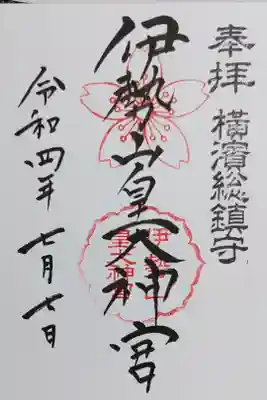 奉拝 横濱総鎮守
伊勢山皇大神宮
令和四年 七月七日
伊勢山
皇大神宮